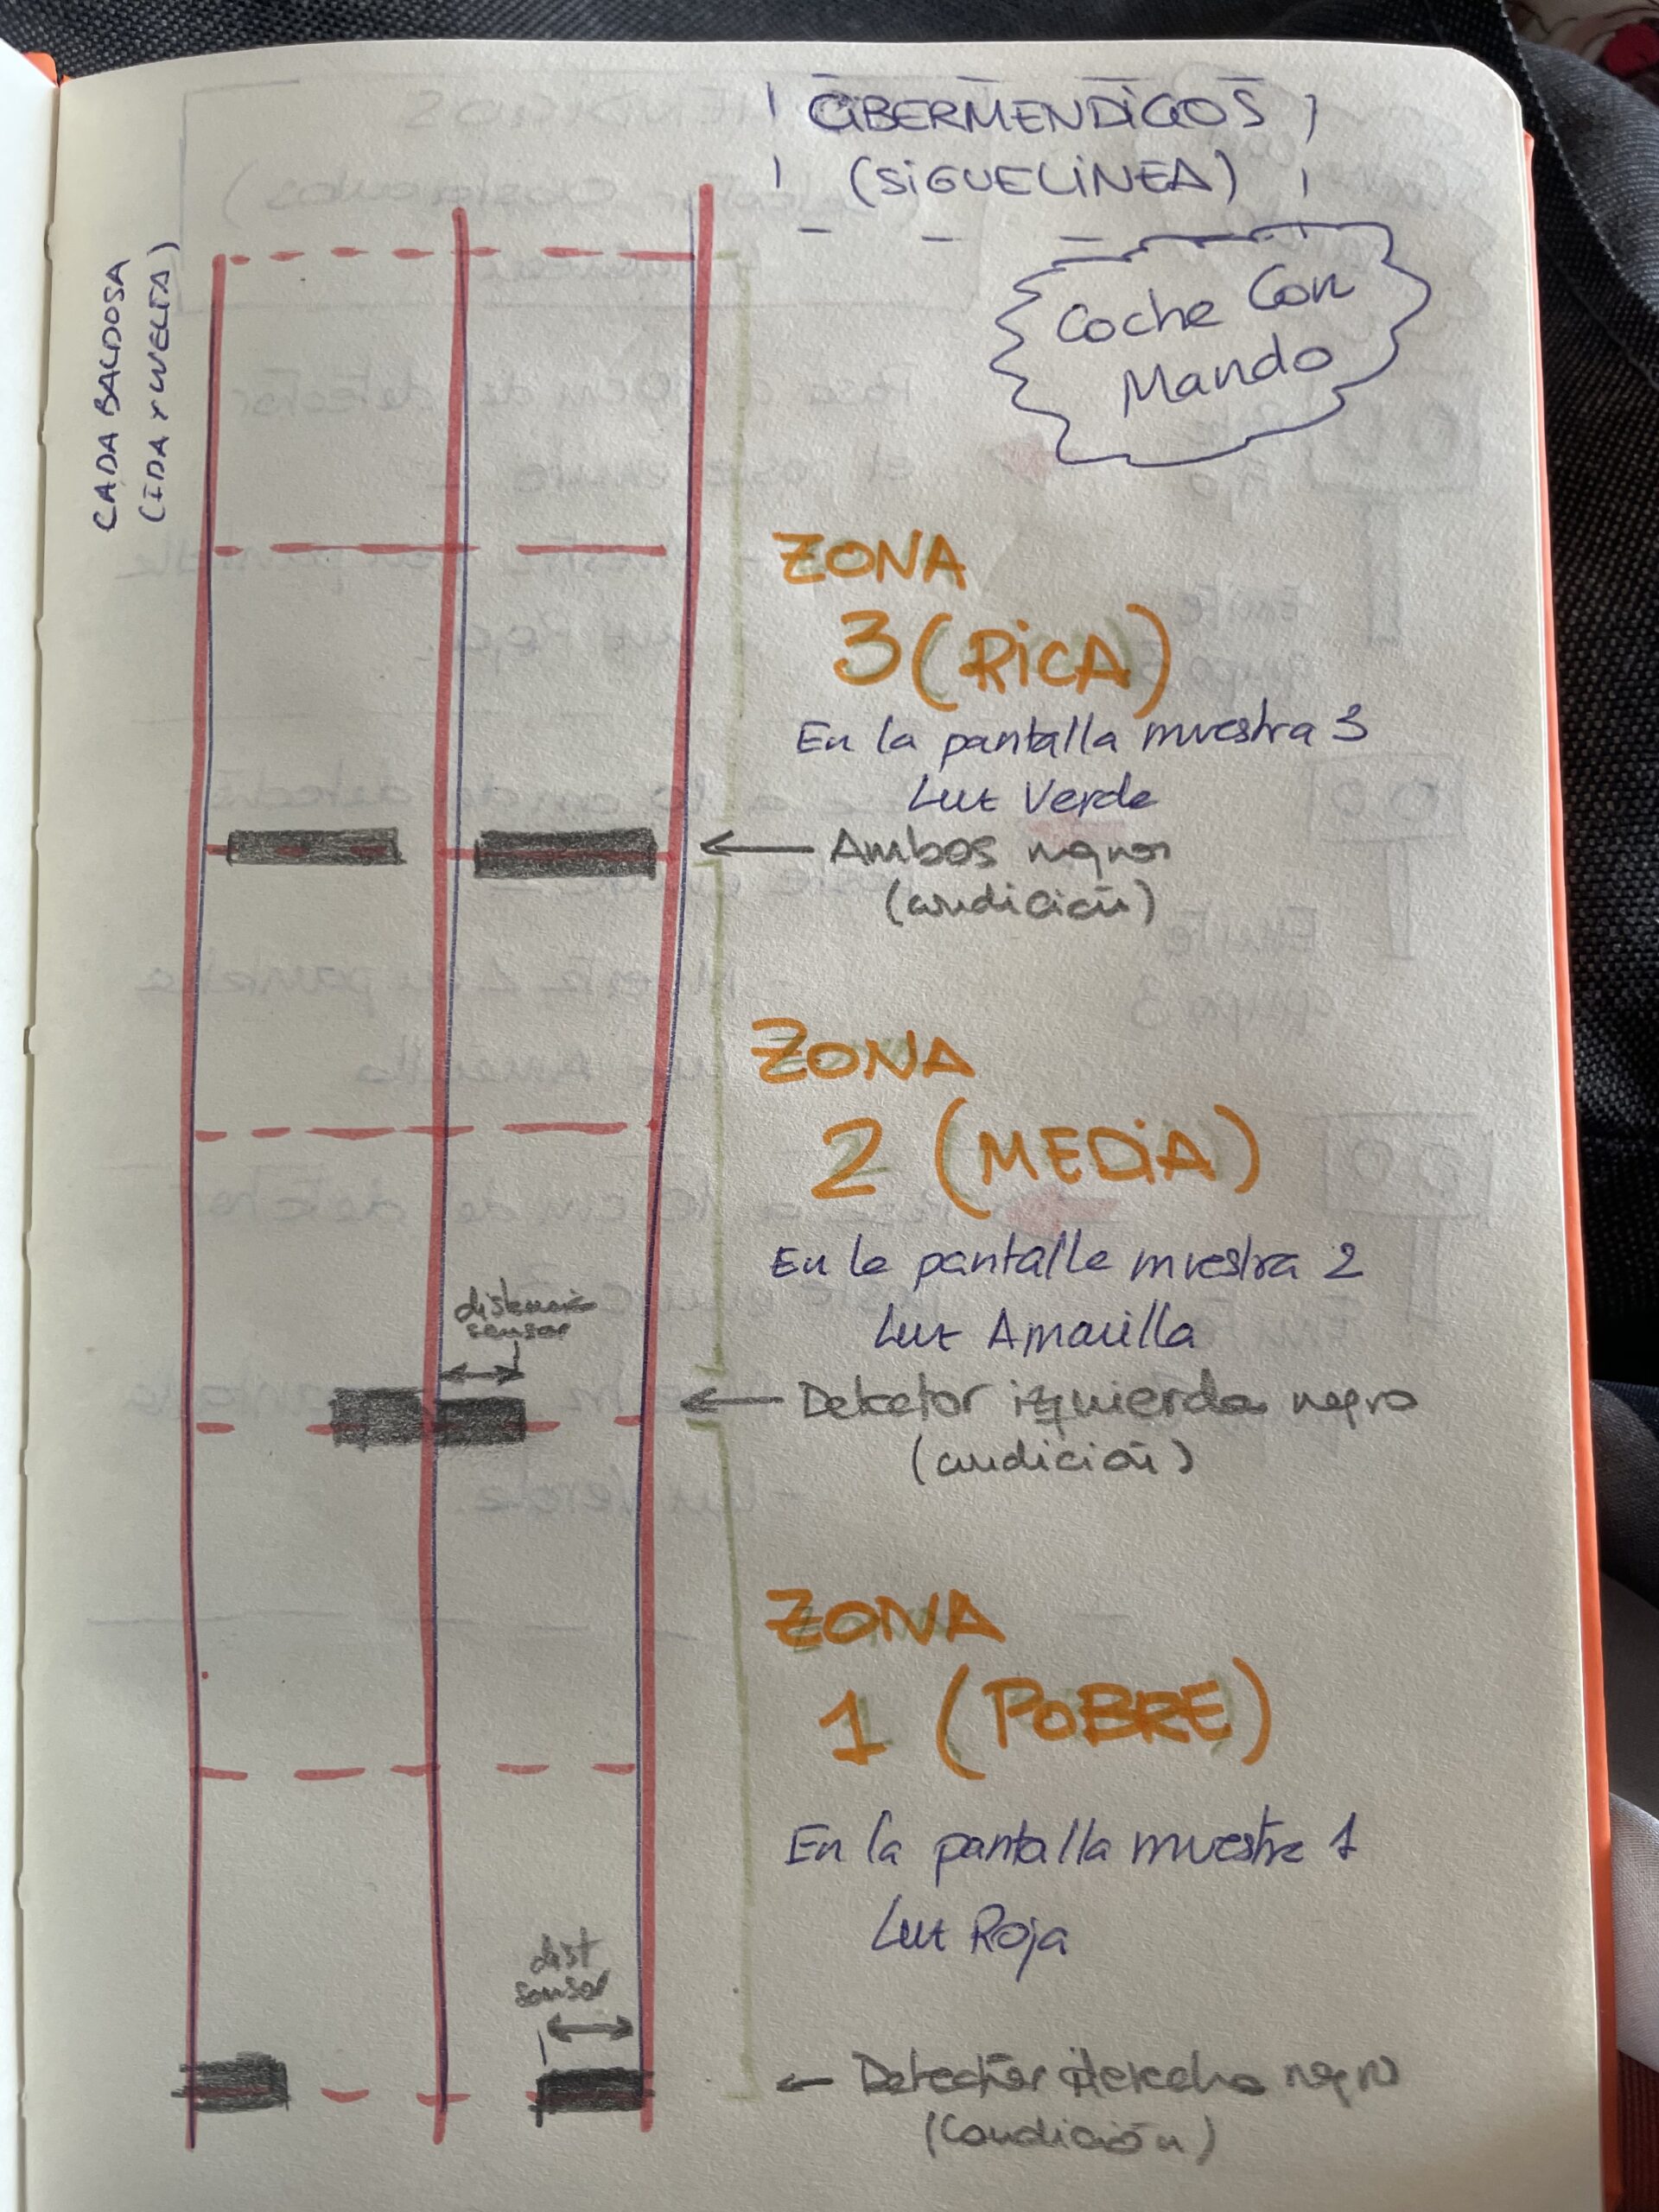 CIBERMENDIGOS
(SIGUELINEA)
Coche Con
Mando
CADA BALDOSA
(IDA Y VUELTA)
ZONA
3 (RICA)
En la pantalla muestra 3
Luz Verde
Ambos negros
(condición)
ZONA
2 (MEDIA)
En la pantalla muestra 2
Luz Amarilla
distancia
sensor
Detector izquierda negro
(condición)
ZONA
1 (POBRE)
En la pantalla muestra 1
Luz Roja
dist
sensor
Detector derecha negro
(Condición)